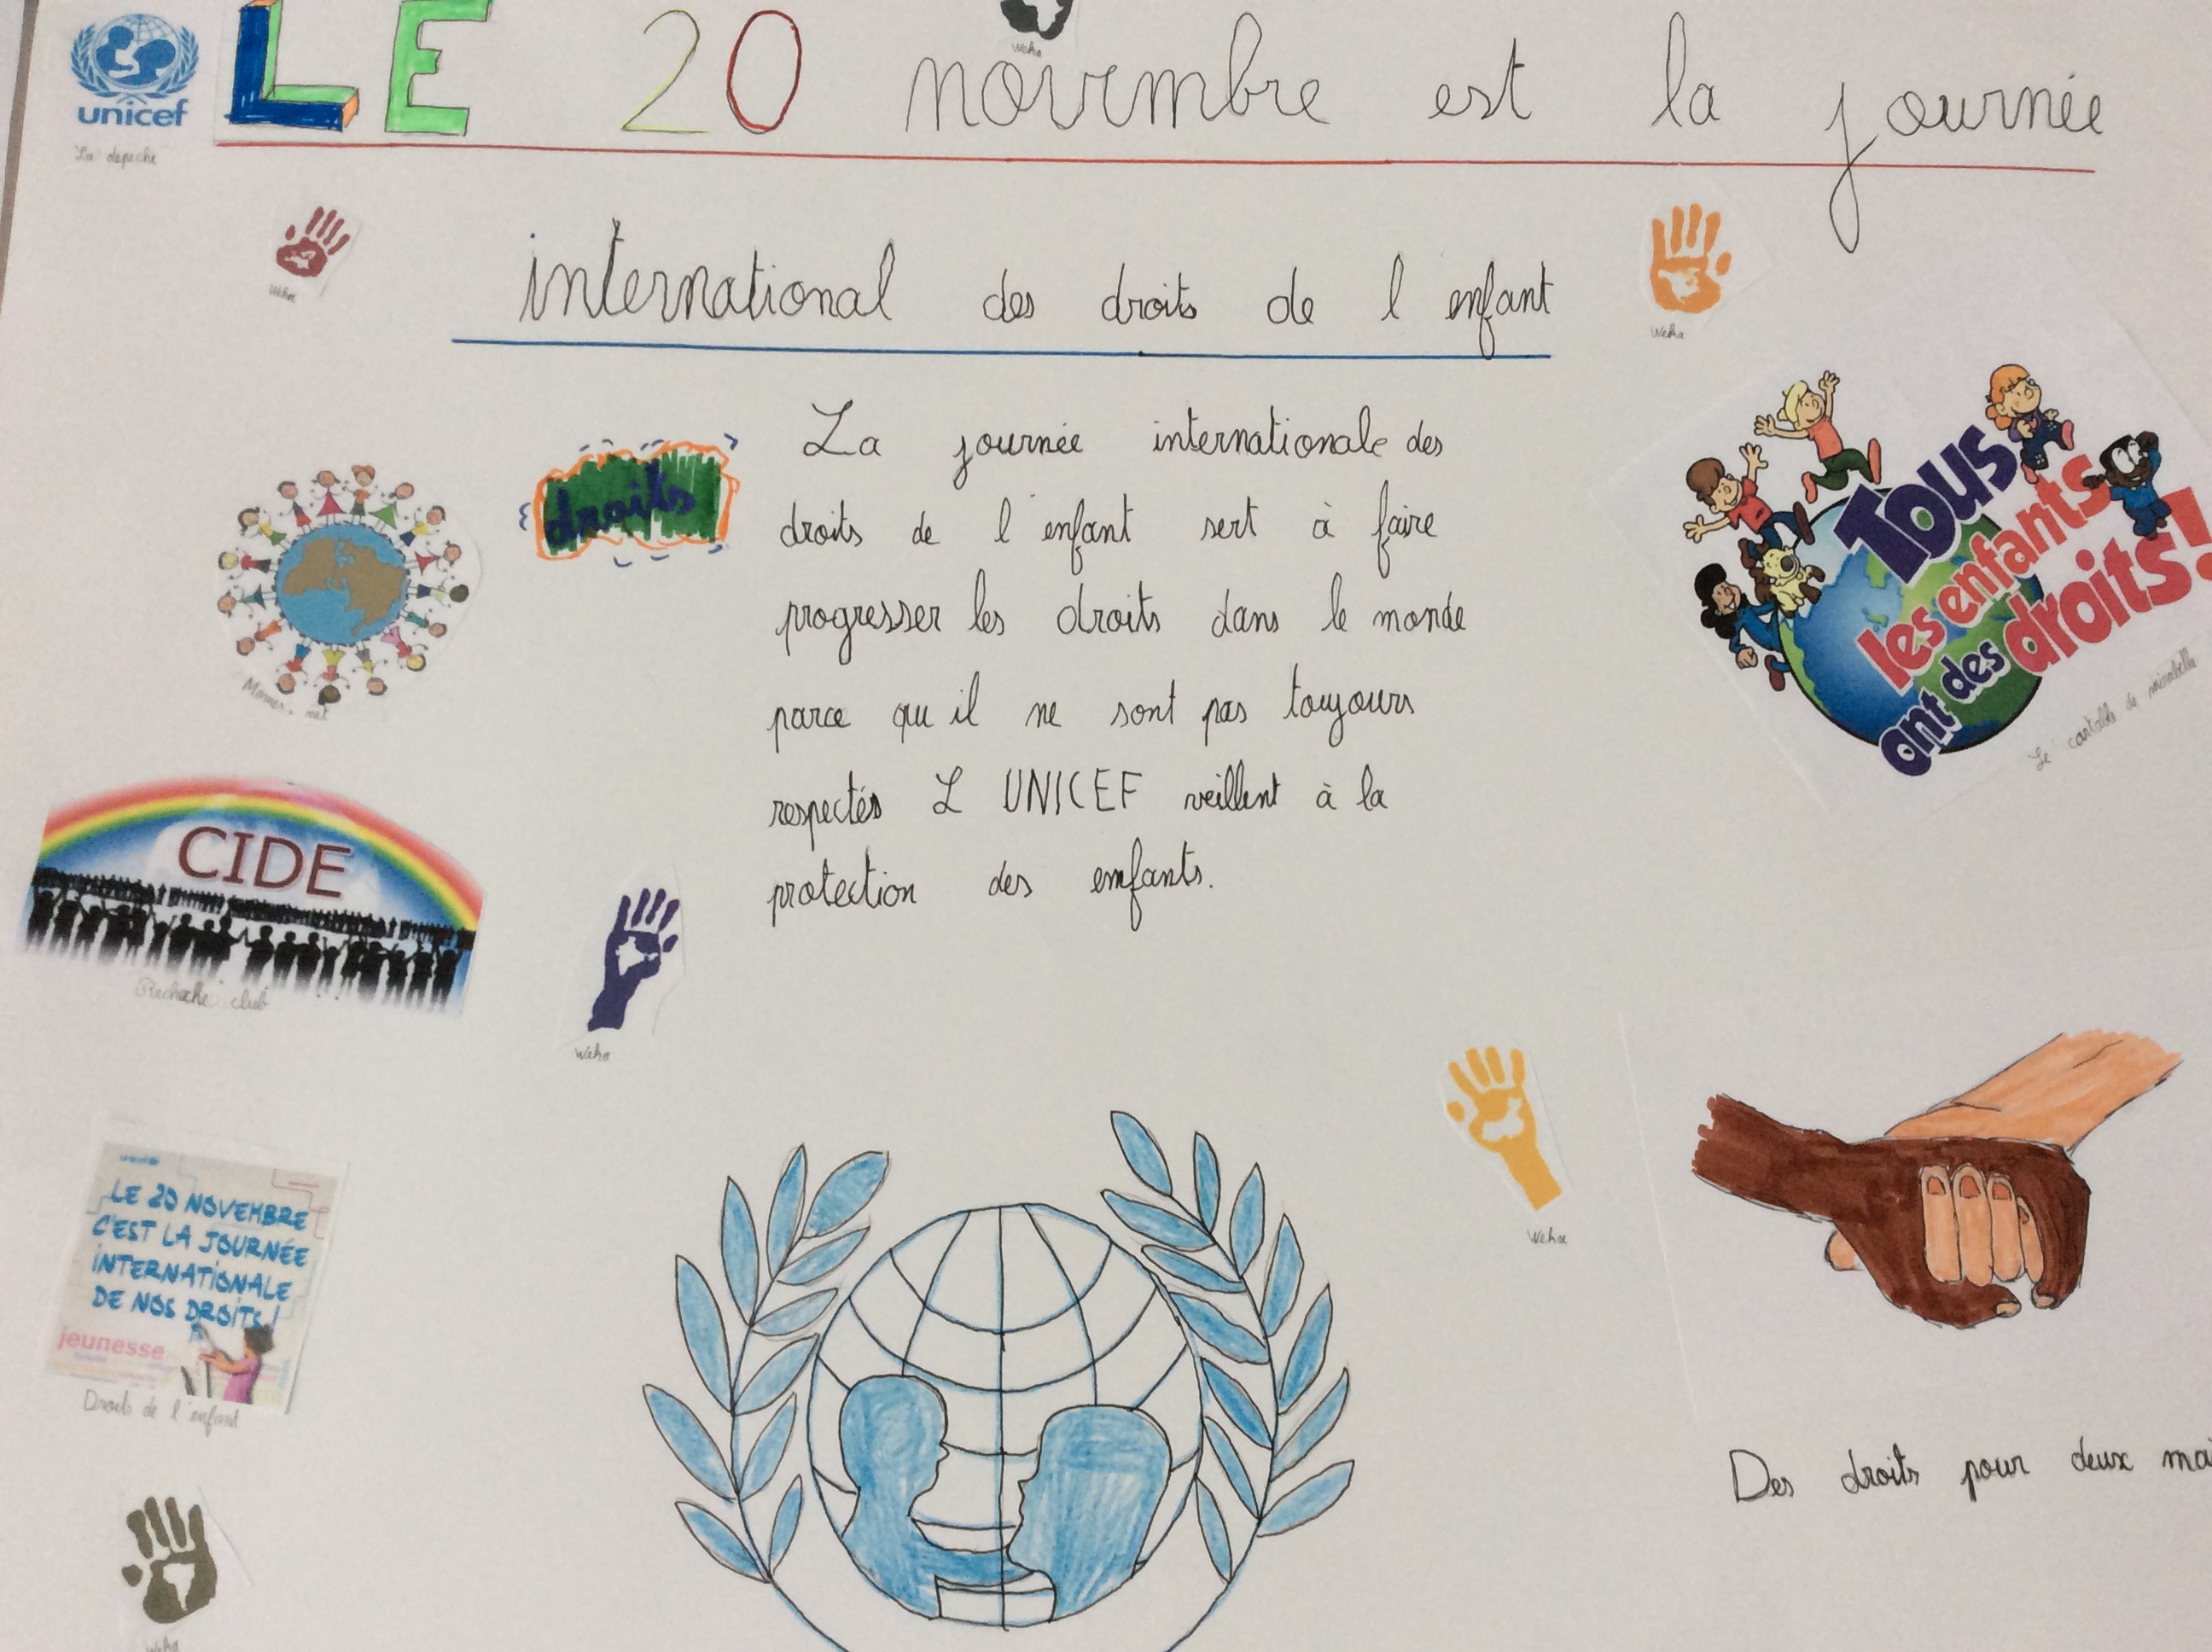 unicef
La depeche
LE 20 novembre est la journée
Weha
international des droits de l enfant
Weha
Weha
droits
La journée internationale des
droits de l enfant sert à faire
progresser les droits dans le monde
parce qu il ne sont pas toujours
respectés L UNICEF veillent à la
protection des enfants.
Tous
les enfants
ont des
droits!
Le cartable de mirabelle
CIDE
club
Weha
Weha
LE 20 NOVEMBRE
C'EST LA JOURNÉE
INTERNATIONALE
DE NOS DROITS!
jeunesse
Droits de l'enfant
Des droits pour deux mai
Weha